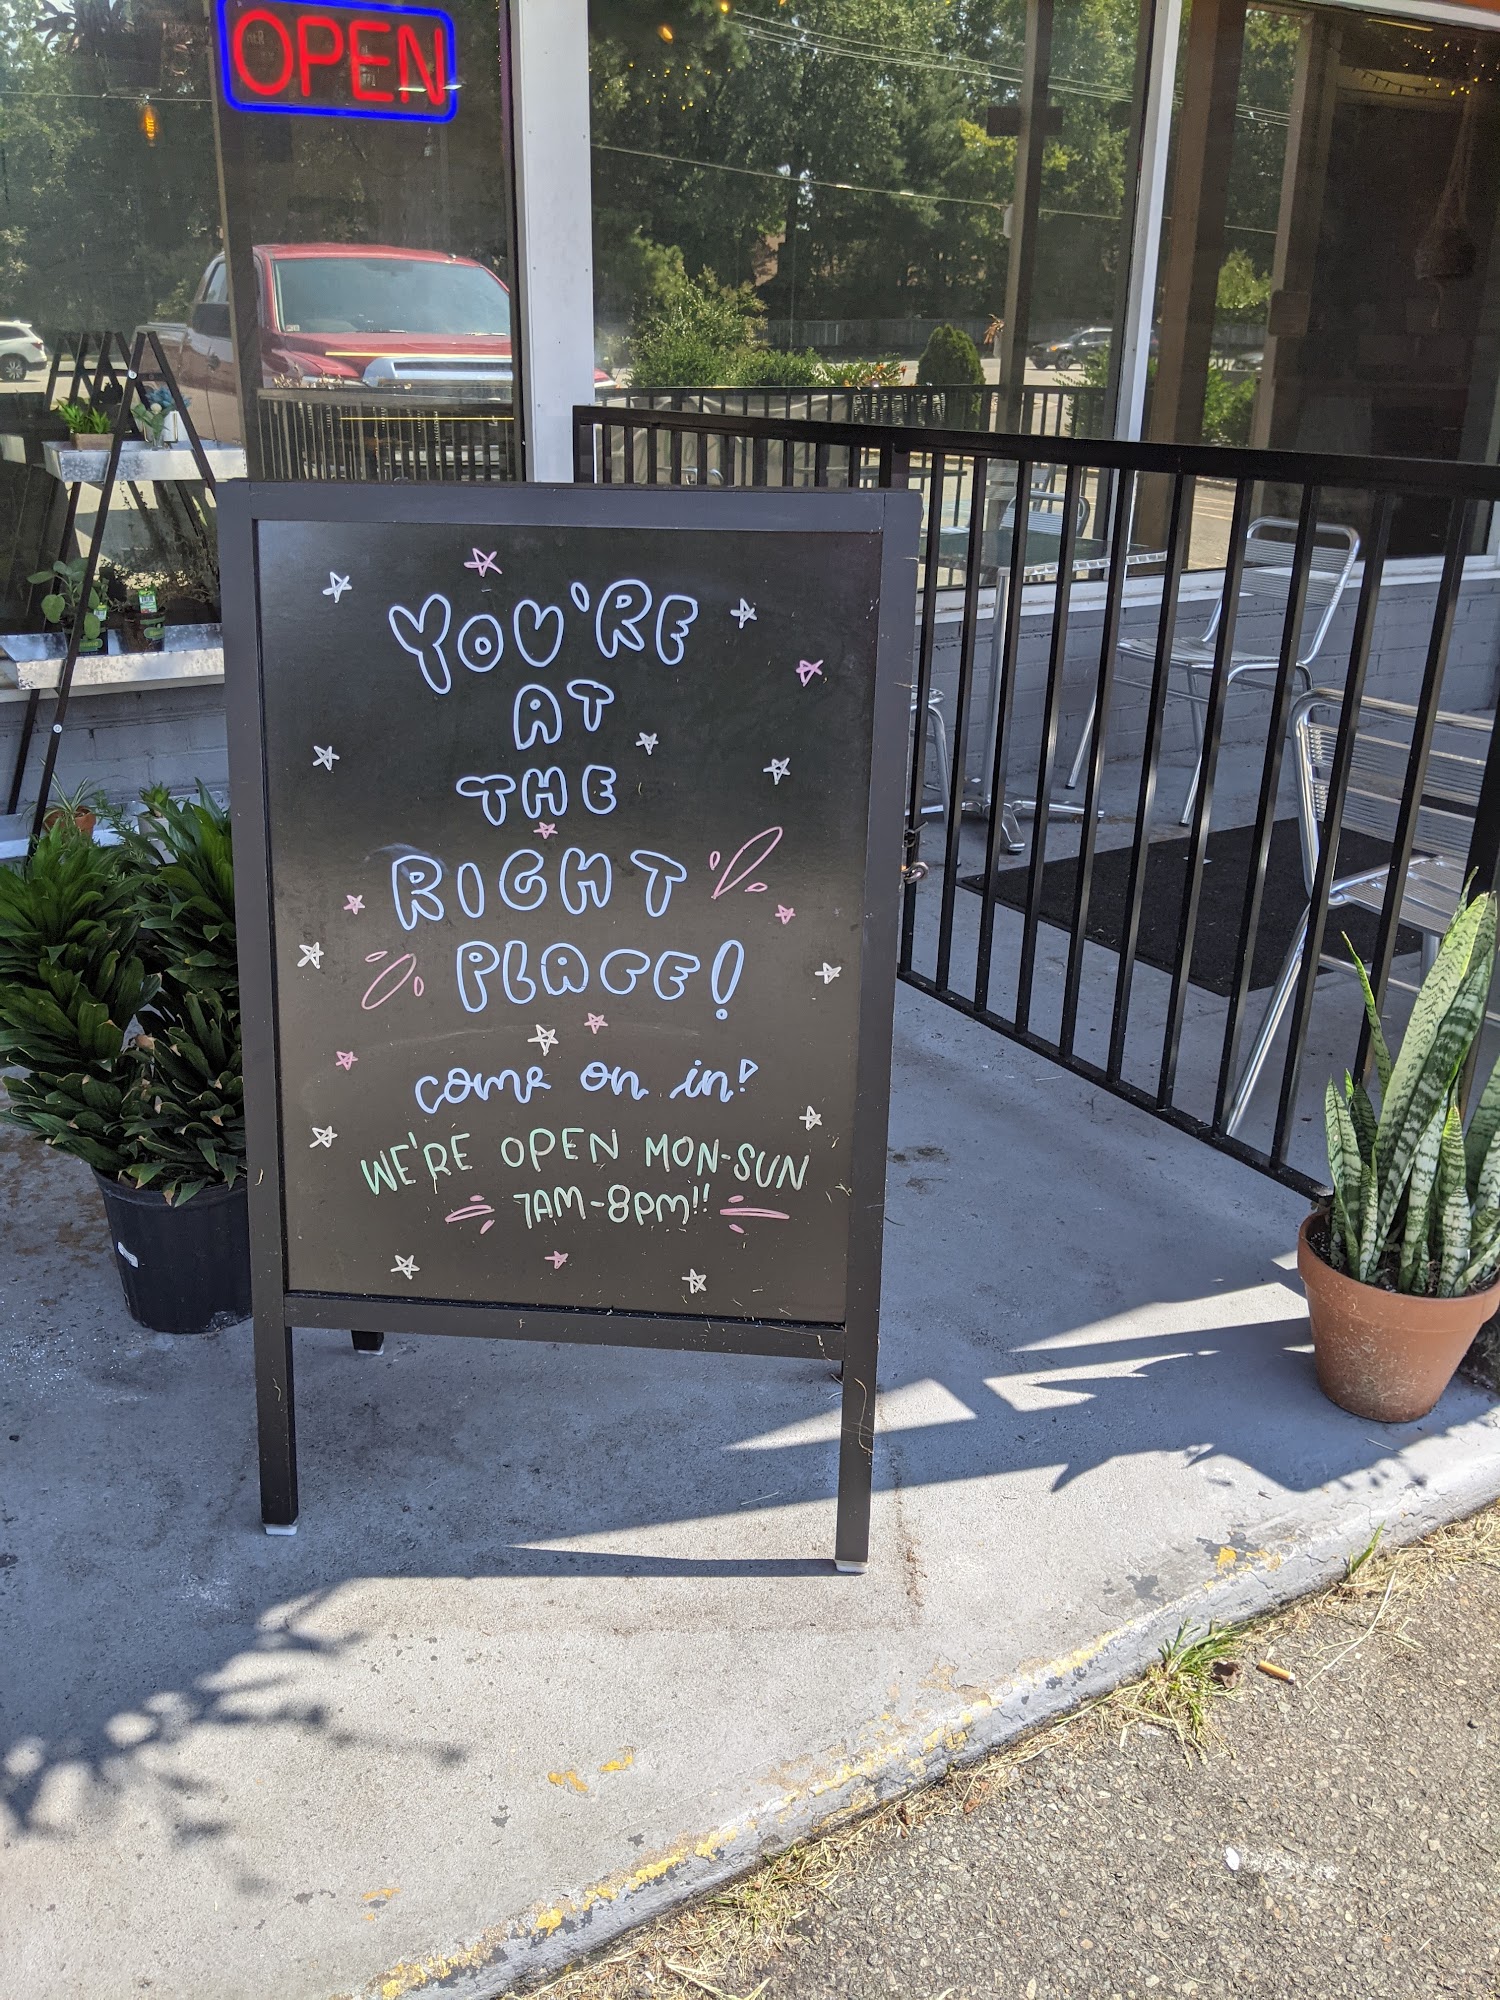 OPEN
YOU'RE
AT
THE
RIGHT
PLACE!
come on in!
WE'RE OPEN MON-SUN
7AM-8PM!!